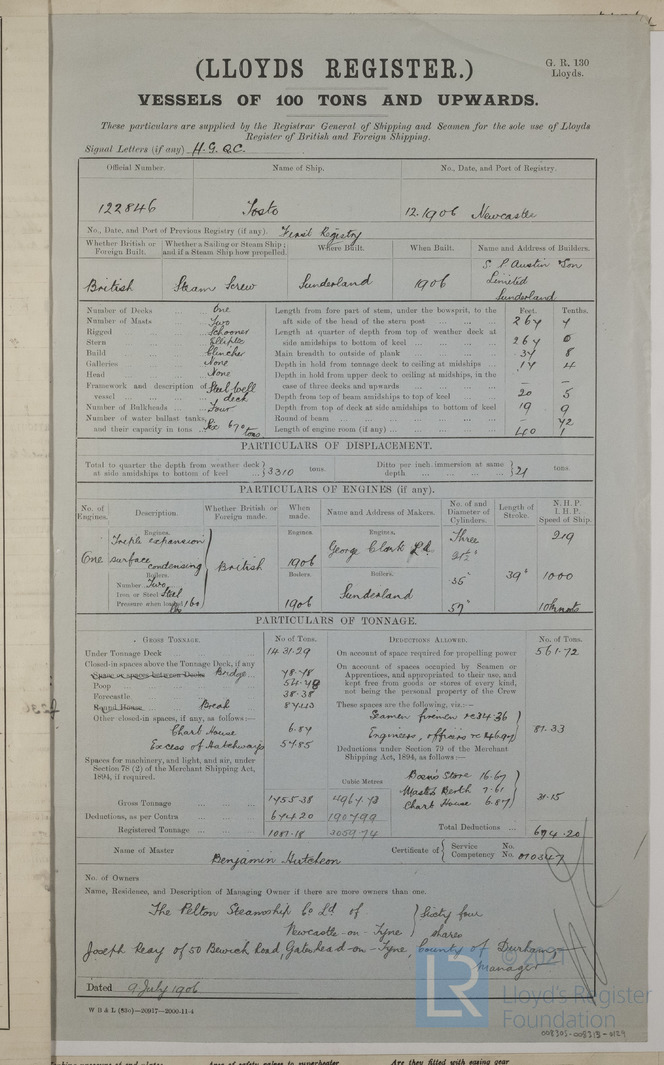 (LLOYDS REGISTER.)
G. R. 130
Lloyds.
VESSELS OF 100 TONS AND UPWARDS.
These particulars are supplied by the Registrar General of Shipping and Seamen for the sole use of Lloyds
Register of British and Foreign Shipping.
Signal Letters (if any) H.G.Q.C.
Official Number. Name of Ship. No., Date, and Port of Registry.
122846 Tosto 12.1906 Newcastle
No., Date, and Port of Previous Registry (if any). First Registry
Whether British or Foreign Built. Whether a Sailing or Steam Ship; and if a Steam Ship how propelled. Where Built. When Built. Name and Address of Builders.
British Steam Screw Sunderland 1906 S. P. Austin & Son
Limited
Sunderland
Number of Decks One
Number of Masts Two
Rigged Schooner
Stern Elliptic
Build Clincher
Galleries None
Head None
Framework and description of vessel Steel well deck
Number of Bulkheads Four
Number of water ballast tanks, and their capacity in tons Six 670 tons
Feet. Tenths.
Length from fore part of stem, under the bowsprit, to the
aft side of the head of the stern post 264 4
Length at quarter of depth from top of weather deck at
side amidships to bottom of keel 264 0
Main breadth to outside of plank 37 8
Depth in hold from tonnage deck to ceiling at midships 17 4
Depth in hold from upper deck to ceiling at midships, in the
case of three decks and upwards — —
Depth from top of beam amidships to top of keel 20 5
Depth from top of deck at side amidships to bottom of keel 19 9
Round of beam - 42
Length of engine room (if any) 40 1
PARTICULARS OF DISPLACEMENT.
Total to quarter the depth from weather deck
at side amidships to bottom of keel 3310 tons.
Ditto per inch immersion at same
depth 21 tons.
PARTICULARS OF ENGINES (if any).
No. of Engines. Description. Whether British or Foreign made. When made. Name and Address of Makers. No. of and Diameter of Cylinders. Length of Stroke. N.H.P. I.H.P. Speed of Ship.
Engines. Engines. Engines.
One Triple expansion
surface
condensing
British 1906 George Clark Ld. Three
21½" 219
Boilers. Boilers. Boilers.
Number Two
Iron or Steel Steel
Pressure when loaded 160 lbs
1906 Sunderland
35" 39" 1000
57" 10 knots
PARTICULARS OF TONNAGE.
GROSS TONNAGE. No of Tons.
Under Tonnage Deck 1431.29
Closed-in spaces above the Tonnage Deck, if any
Space or spaces between Decks Bridge 78.78
Poop
Forecastle 38.38
Round House Break
Other closed-in spaces, if any, as follows:—
Chart House 6.87
Excess of Hatchways 57.85
Spaces for machinery, and light, and air, under
Section 78 (2) of the Merchant Shipping Act,
1894, if required.
Cubic Metres
Gross Tonnage
Deductions, as per Contra 674.20 1907.99
Registered Tonnage 1081.18 3059.74
DEDUCTIONS ALLOWED. No. of Tons.
On account of space required for propelling power 561.72
On account of spaces occupied by Seamen or
Apprentices, and appropriated to their use, and
kept free from goods or stores of every kind,
not being the personal property of the Crew
These spaces are the following, viz.:—
Seamen firemen &c 34.36
Engineers, officers &c 46.97
81.33
Deductions under Section 79 of the Merchant
Shipping Act, 1894, as follows:—
Bosn's Store 16.67
Master's Berth 7.61
Chart House 6.87
31.15
Total Deductions 674.20
Name of Master Benjamin Hutcheon
Certificate of Service No.
Competency No. 010347
No. of Owners
Name, Residence, and Description of Managing Owner if there are more owners than one.
The Pelton Steamship Co Ld. of
Newcastle-on-Tyne
Sixty four
shares
Joseph Reay of 50 Bewick Road, Gateshead-on-Tyne, County of Durham
Manager
Dated 9 July 1906
W B & L (53o)—20917—2000-11-4
© 2021
LR
Lloyd's Register
Foundation
008305-008315-0129
Are they fitted with easing gear